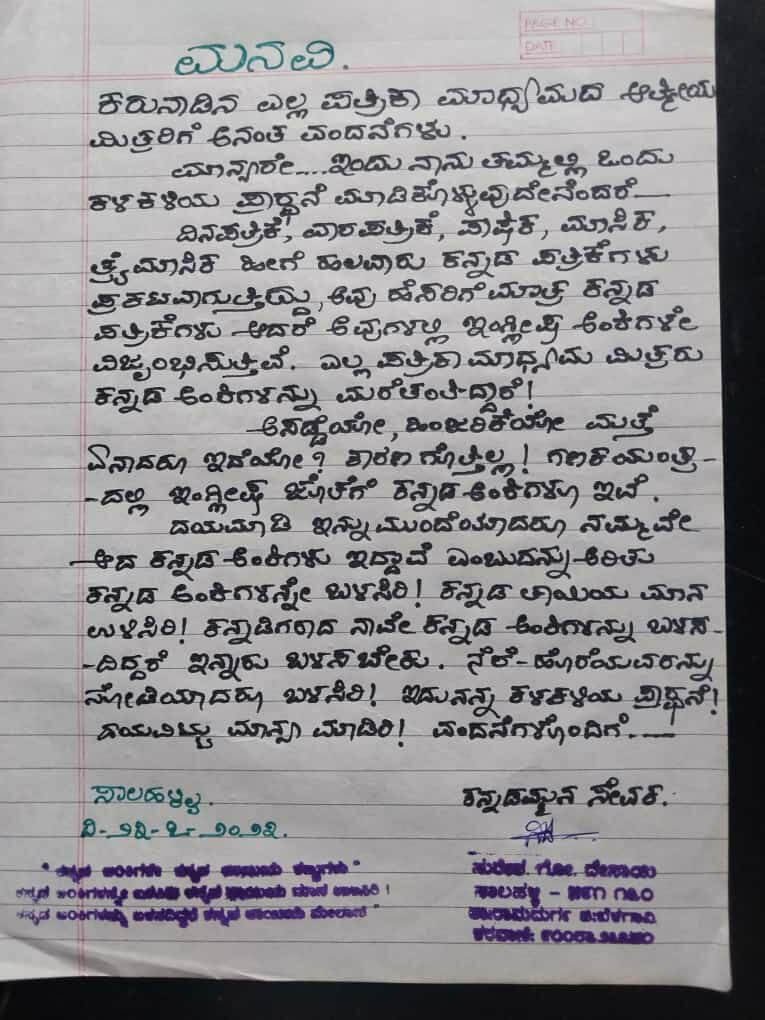 PAGE NO.
DATE
ಮನವಿ.
ಕರುನಾಡಿನ ಎಲ್ಲ ಪತ್ರಿಕಾ ಮಾಧ್ಯಮದ ಆತ್ಮೀಯ
ಮಿತ್ರರಿಗೆ ಅನಂತ ವಂದನೆಗಳು.
ಮಾನ್ಯರೇ....ಇಂದು ನಾನು ತಮ್ಮಲ್ಲಿ ಒಂದು
ಕಳಕಳಿಯ ಪ್ರಾರ್ಥನೆ ಮಾಡಿಕೊಳ್ಳುವುದೇನೆಂದರೆ—
ದಿನಪತ್ರಿಕೆ, ವಾರಪತ್ರಿಕೆ, ಪಾಕ್ಷಿಕ, ಮಾಸಿಕ,
ತ್ರೈಮಾಸಿಕ ಹೀಗೆ ಹಲವಾರು ಕನ್ನಡ ಪತ್ರಿಕೆಗಳು
ಪ್ರಕಟವಾಗುತ್ತಿದ್ದು, ಅವು ಹೆಸರಿಗೆ ಮಾತ್ರ ಕನ್ನಡ
ಪತ್ರಿಕೆಗಳು ಆದರೆ ಅವುಗಳಲ್ಲಿ ಇಂಗ್ಲೀಷ ಅಂಕಿಗಳೇ
ವಿಜೃಂಭಿಸುತ್ತವೆ. ಎಲ್ಲ ಪತ್ರಿಕಾ ಮಾಧ್ಯಮ ಮಿತ್ರರು
ಕನ್ನಡ ಅಂಕಿಗಳನ್ನು ಮರೆತಂತಿದ್ದಾರೆ!
ಅಸಡ್ಡೆಯೋ, ಹಿಂಜರಿಕೆಯೋ ಮತ್ತೆ
ಏನಾದರೂ ಇದೆಯೋ? ಕಾರಣ ಗೊತ್ತಿಲ್ಲ! ಗಣಕಯಂತ್ರ-
-ದಲ್ಲಿ ಇಂಗ್ಲೀಷ ಜೊತೆಗೆ ಕನ್ನಡ ಅಂಕಿಗಳೂ ಇವೆ.
ದಯಮಾಡಿ ಇನ್ನು ಮುಂದೆಯಾದರೂ ನಮ್ಮವೇ
ಆದ ಕನ್ನಡ ಅಂಕಿಗಳು ಇದ್ದಾವೆ ಎಂಬುದನ್ನು ಅರಿತು
ಕನ್ನಡ ಅಂಕಿಗಳನ್ನೇ ಬಳಸಿರಿ! ಕನ್ನಡ ತಾಯಿಯ ಮಾನ
ಉಳಿಸಿರಿ! ಕನ್ನಡಿಗರಾದ ನಾವೇ ಕನ್ನಡ ಅಂಕಿಗಳನ್ನು ಬಳಸ-
-ದಿದ್ದರೆ ಇನ್ನಾರು ಬಳಸಬೇಕು. ನೆರೆ-ಹೊರೆಯವರನ್ನು
ನೋಡಿಯಾದರೂ ಬಳಸಿರಿ! ಇದು ನನ್ನ ಕಳಕಳಿಯ ಪ್ರಾರ್ಥನೆ!
ದಯವಿಟ್ಟು ಮಾನ್ಯ ಮಾಡಿರಿ! ವಂದನೆಗಳೊಂದಿಗೆ.....
ಸಾಲಹಳ್ಳಿ.
ದಿ-೨೩-೬-೨೦೨೩.
ಕನ್ನಡಮ್ಮನ ಸೇವಕ.
" ಕನ್ನಡ ಅಂಕಿಗಳು ಕನ್ನಡ ತಾಯಿಯ ಕಣ್ಣುಗಳು "
ಕನ್ನಡ ಅಂಕಿಗಳನ್ನೇ ಬಳಸಿ ಕನ್ನಡ ತಾಯಿಯ ಮಾನ ಉಳಿಸಿರಿ !
ಕನ್ನಡ ಅಂಕಿಗಳನ್ನು ಬಳಸದಿದ್ದರೆ ಕನ್ನಡ ತಾಯಿಯ ಮೇಲಾಣೆ "
ಸುರೇಶ. ಗೋ. ದೇಸಾಯಿ
ಸಾಲಹಳ್ಳಿ -
ತಾ:ರಾಮದುರ್ಗ ಜಿ:ಬೆಳಗಾವಿ